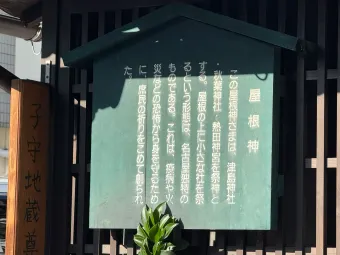 屋根神
この屋根神さまは、津島神社
・秋葉神社・熱田神宮を祭神と
する。屋根の上に小さな社を祭
るという形態は、名古屋独特の
ものである。これは、疫病や火
災などの恐怖から身を守るため
に、庶民の祈りをこめて創られ
た。
子守地蔵尊